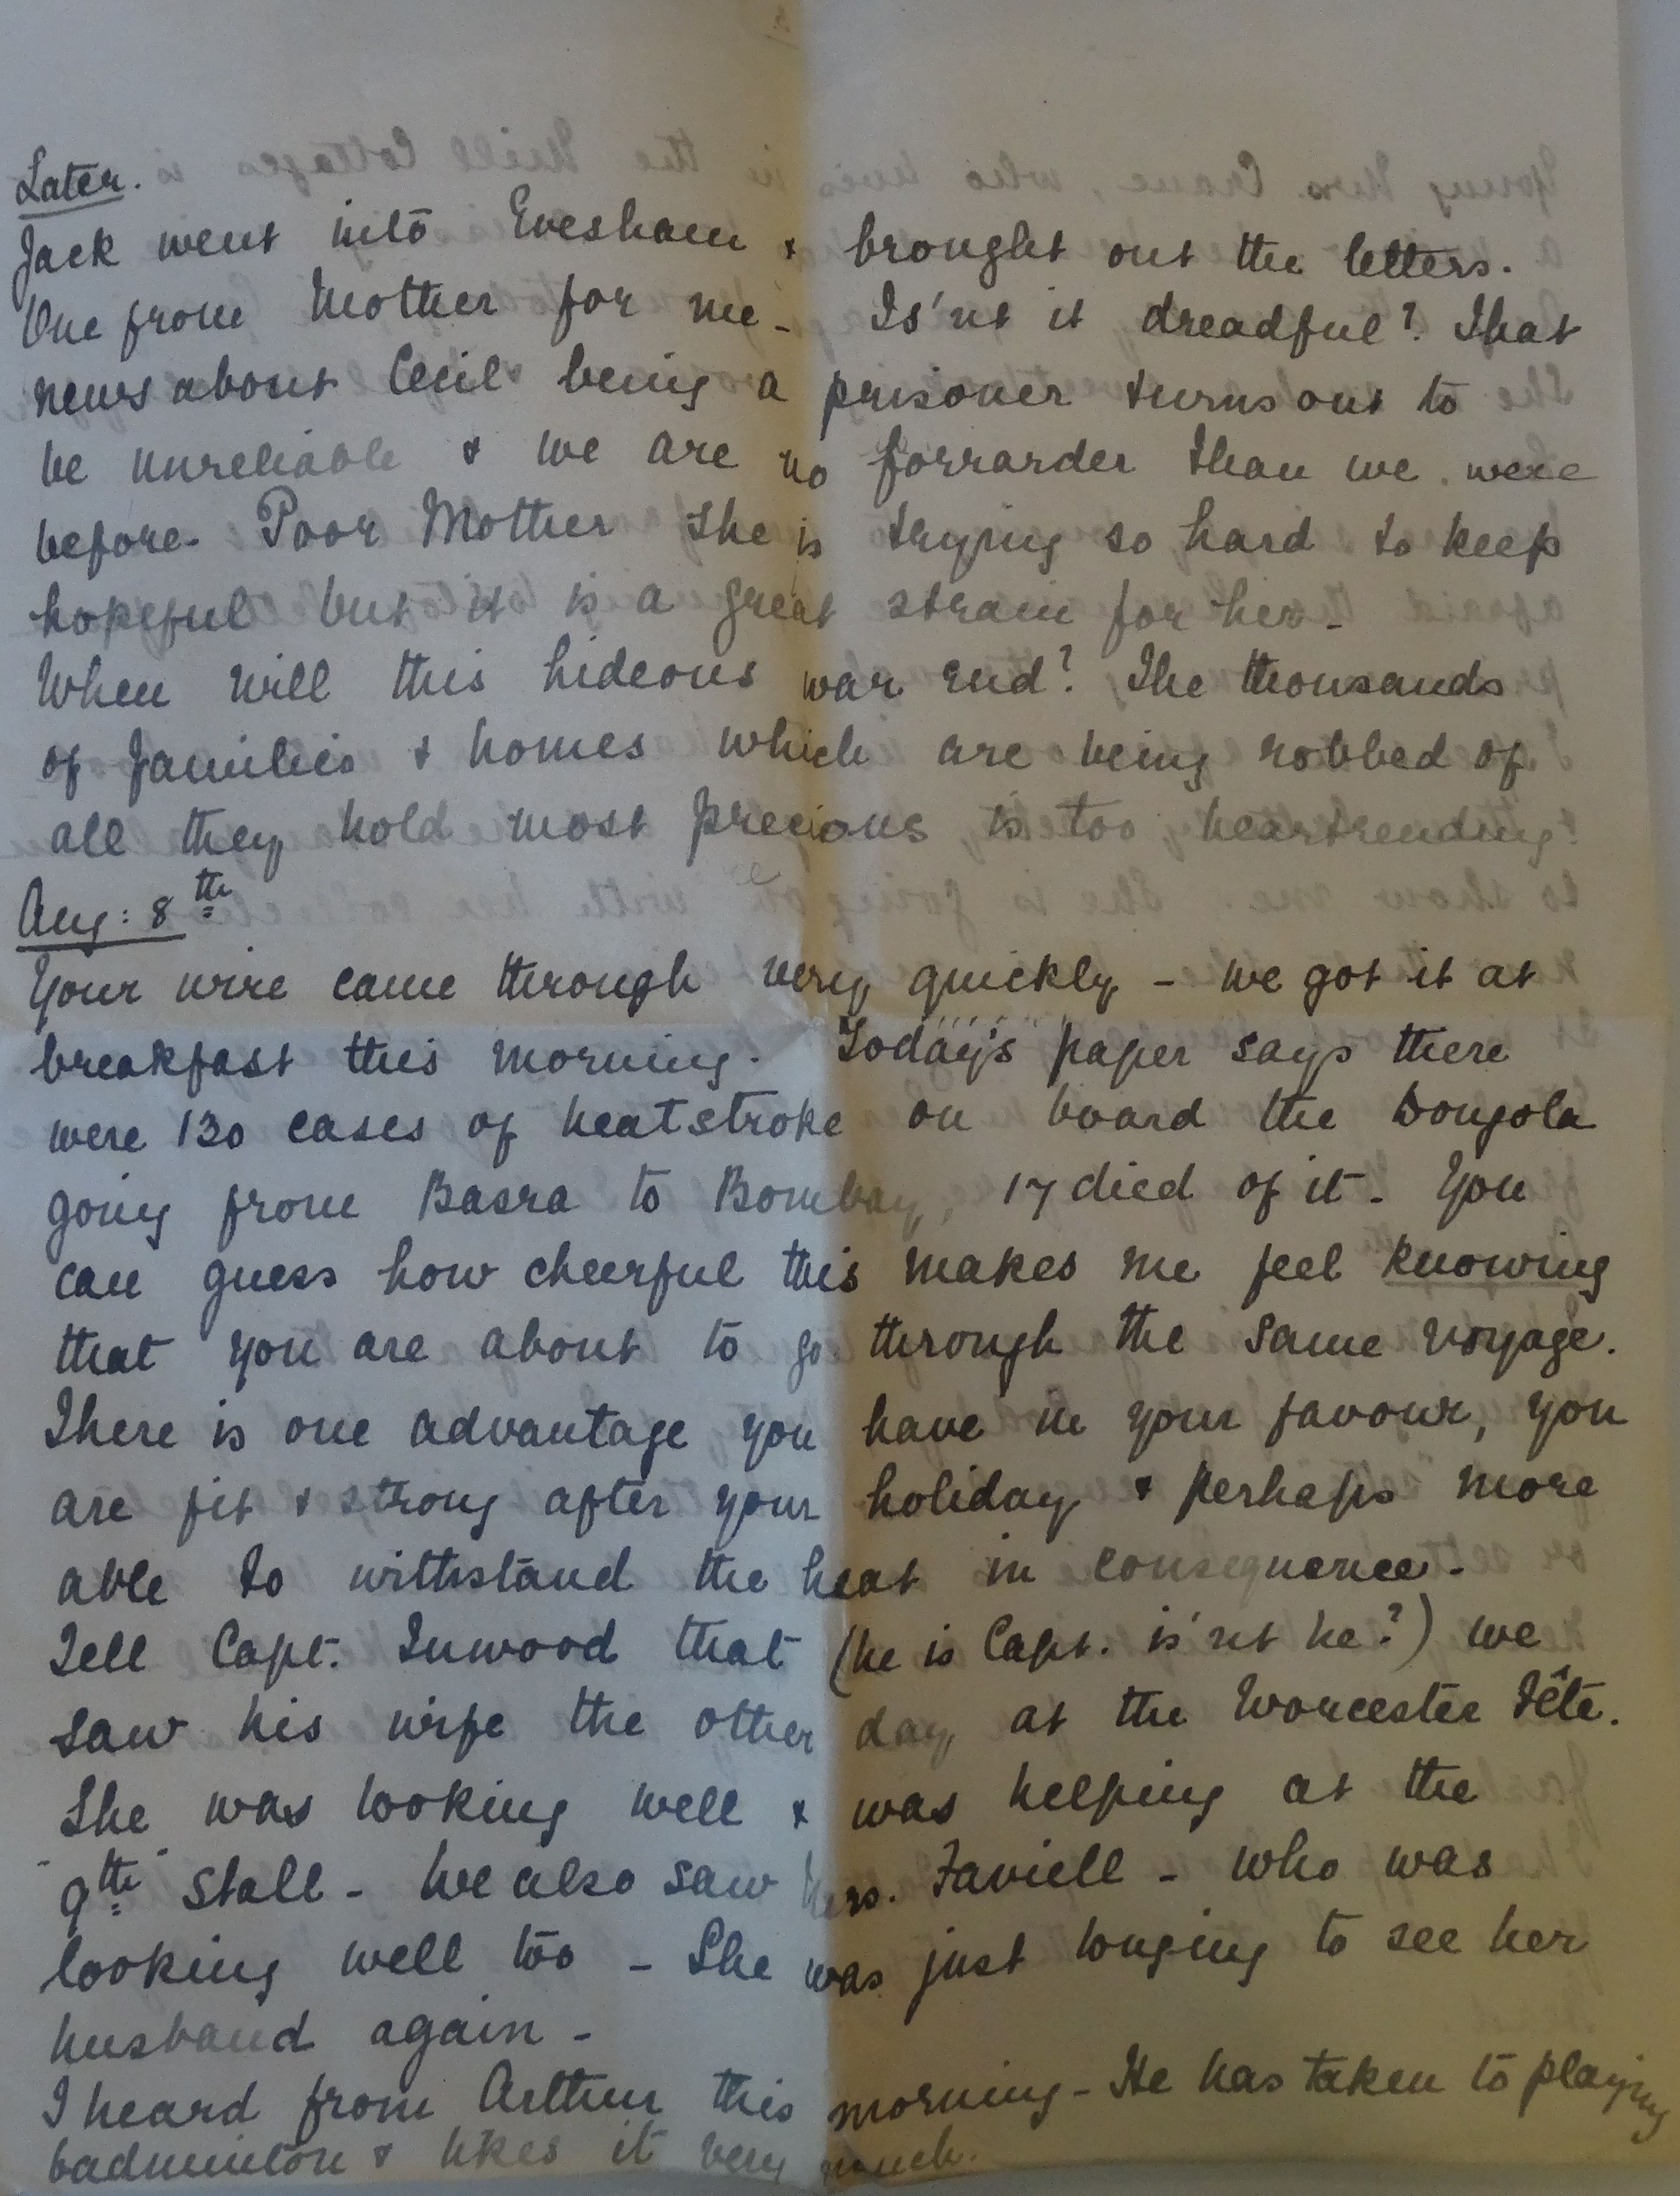 Later.
Jack went into Evesham & brought out the letters.
One from Mother for me - Is'nt it dreadful? That
news about Cecil being a prisoner turns out to
be unreliable & we are no forrarder than we were
before. Poor Mother she is trying so hard to keep
hopeful but it is a great strain for her -
When will this hideous war end? The thousands
of families & homes which are being robbed of
all they hold most precious is too heartrending!
Aug: 8th
Your wire came through very quickly - we got it at
breakfast this morning. Today's paper says there
were 130 cases of heatstroke on board the Dongola
going from Basra to Bombay, 17 died of it - You
can guess how cheerful this makes me feel knowing
that you are about to go through the same voyage.
There is one advantage you have in your favour, you
are fit & strong after your holiday & perhaps more
able to withstand the heat in consequence -
Tell Capt. Inwood that (he is Capt. is'nt he?) we
saw his wife the other day at the Worcester Fête.
She was looking well & was helping at the
"9th" Stall - We also saw Mrs. Faviell - who was
looking well too - She was just longing to see her
husband again -
I heard from Arthur this morning - He has taken to playing
badminton & likes it very much.